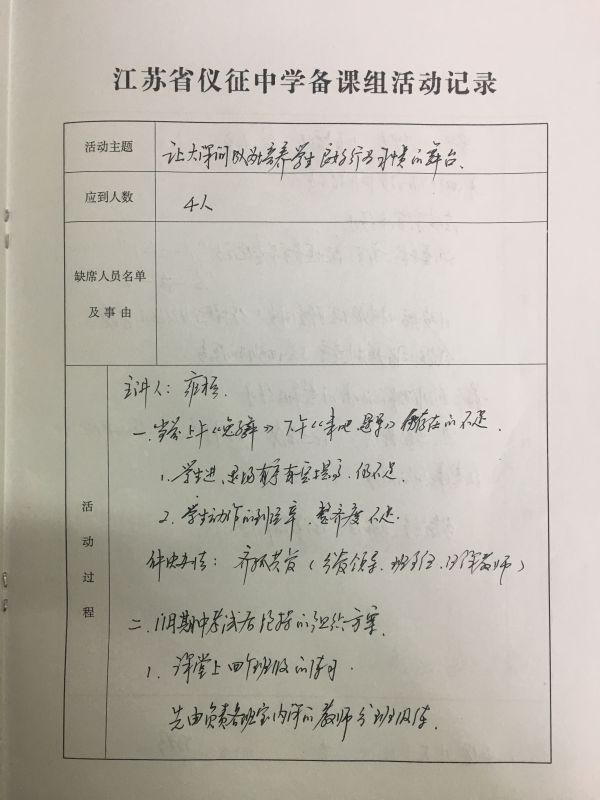 江苏省仪征中学备课组活动记录
活动主题 让大课间成为培养学生良好行为习惯的舞台.
应到人数 4人
缺席人员名单
及事由
活动过程
主讲人:
一. 当前上午《》下午《》存在的不足.
1. 学生进、退场有序有提高,仍不足.
2. 学生动作的到位率、整齐度不足.
解决办法: 齐抓共管(分管领导、班主任、任课教师)
二. 期中考试后的组织方案.
1. 课堂上四个班级的练习.
先由负责各班室内课的教师分班级练.